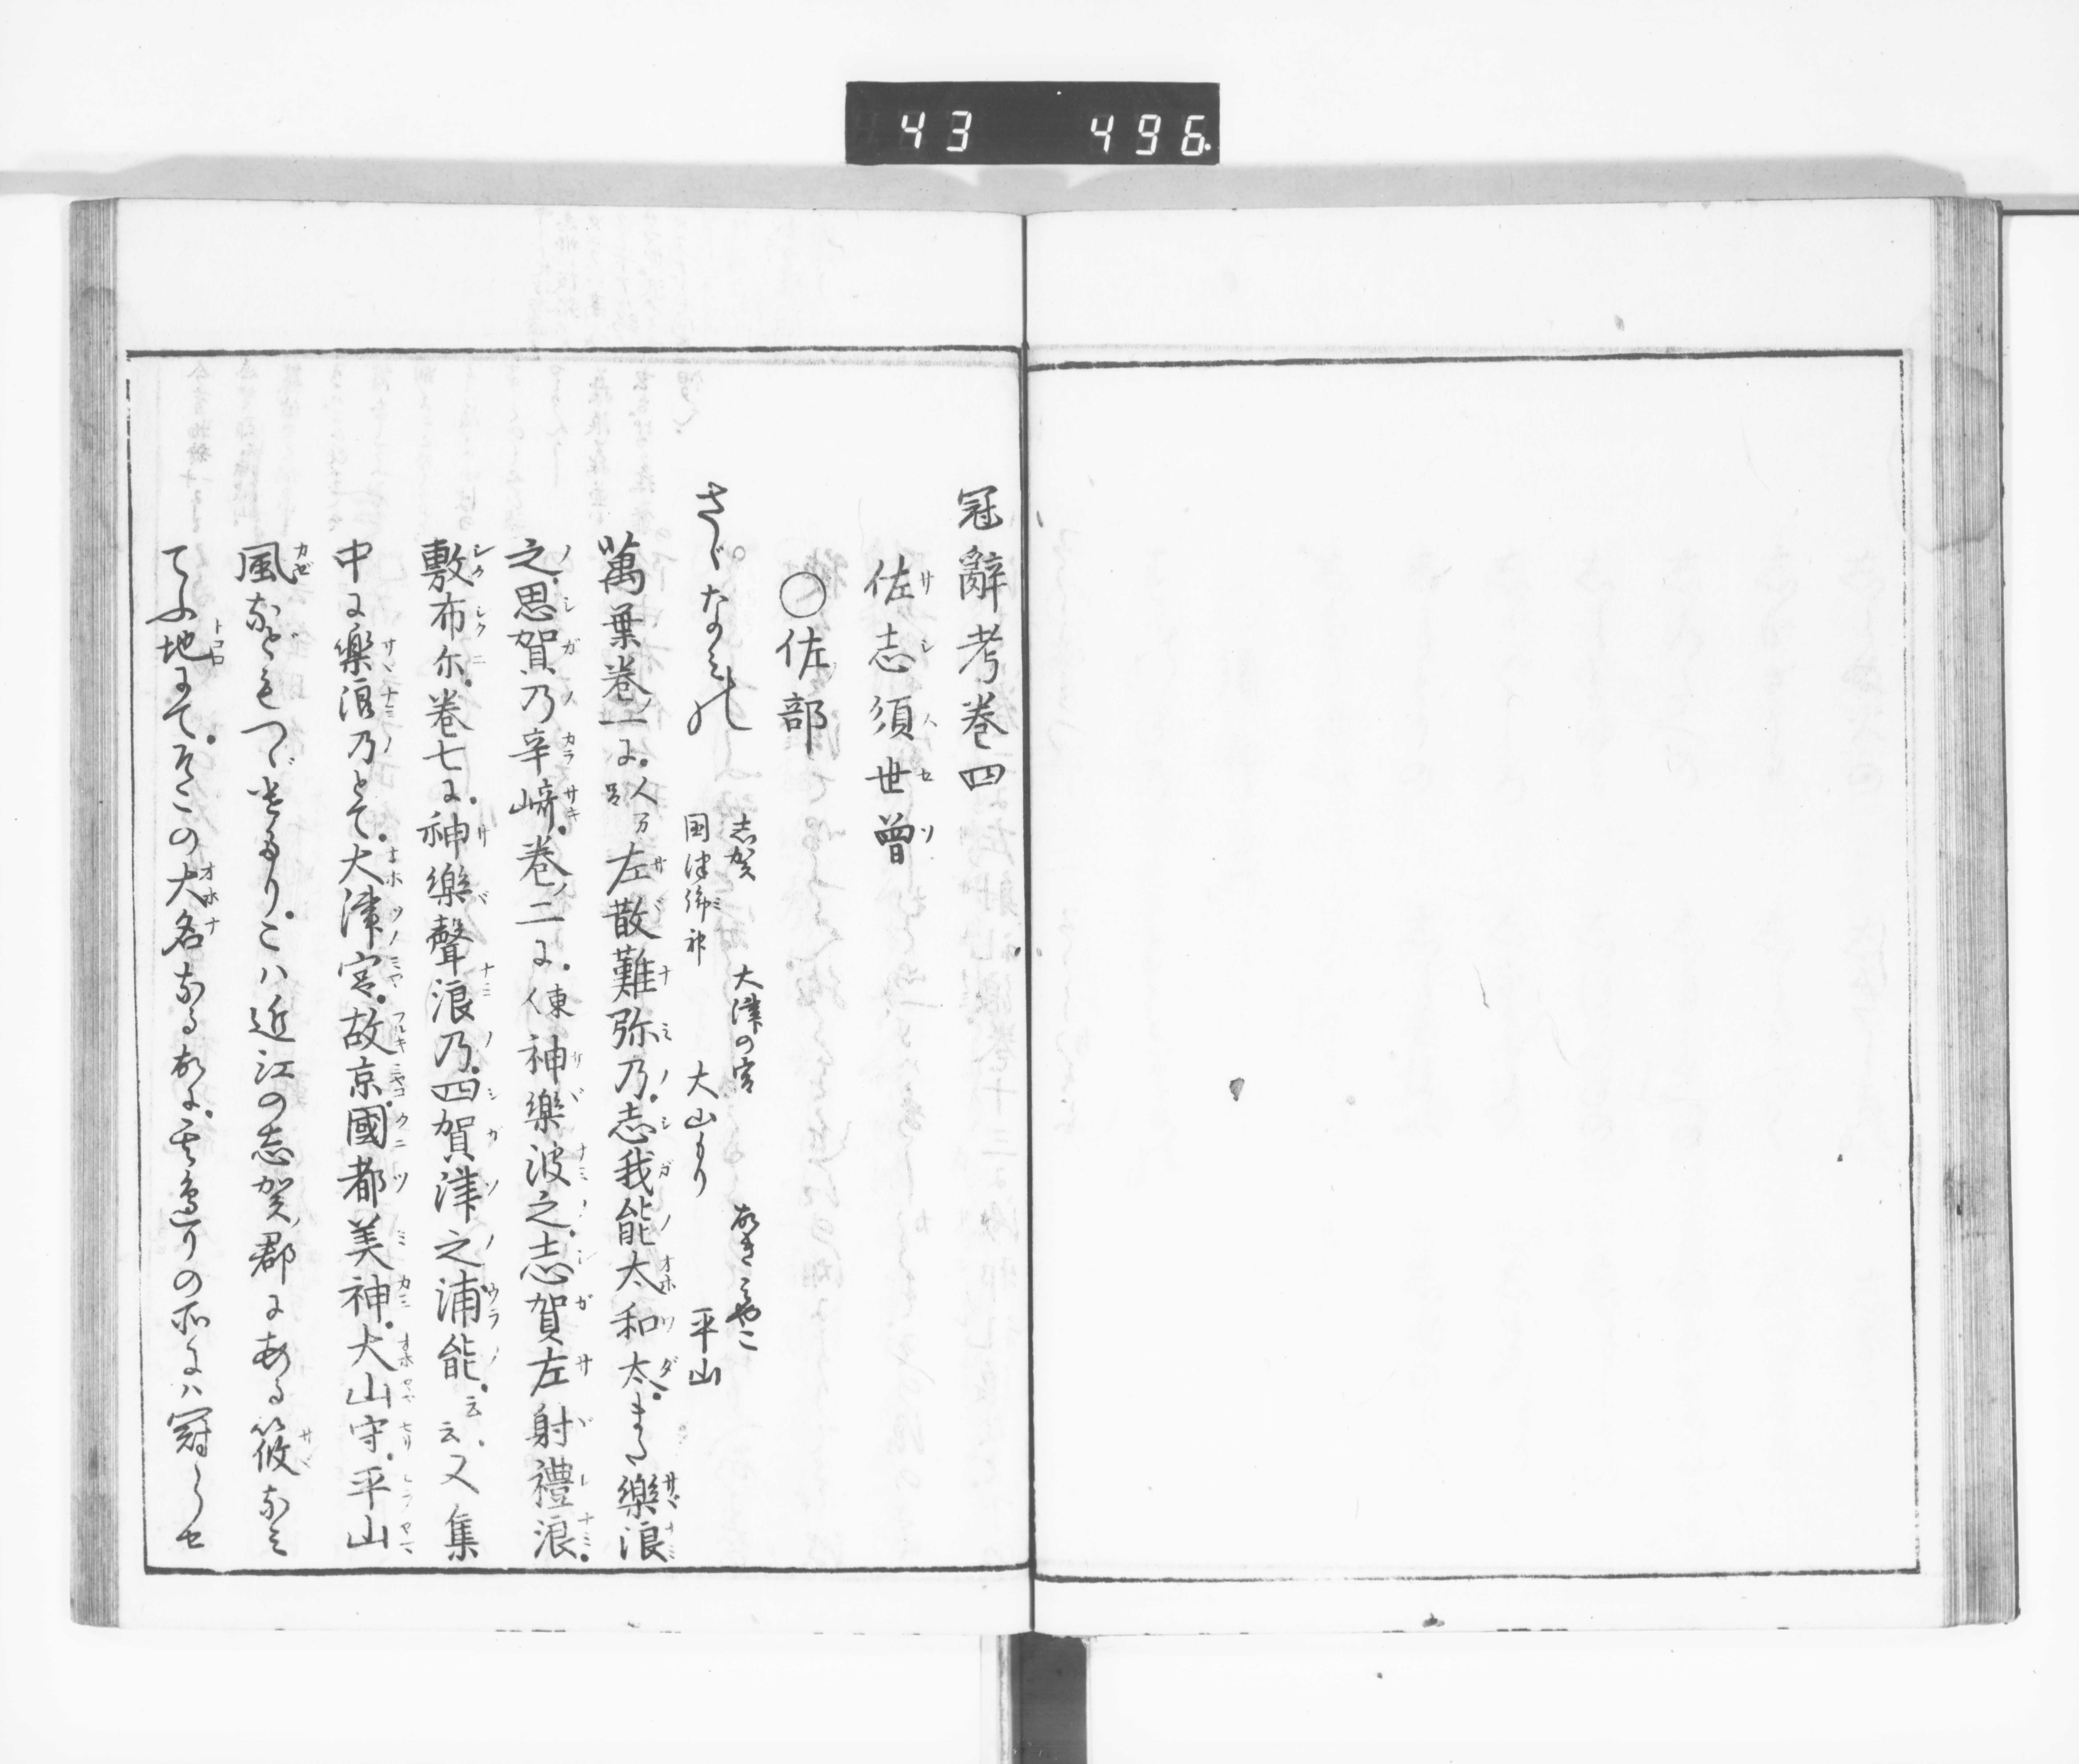 43 496
冠辭考卷四
佐志須世曾
〇佐部
さゝなみの
志賀 大津の宮 ふるきみやこ
国津御神 大山もり 平山
萬葉卷一に左散難弥乃志我能太和太また樂浪
之思賀乃辛崎卷二に神樂波之志賀左射禮浪
敷布尓卷七に神樂聲浪乃四賀津之浦能云云又集
中に樂浪乃とて大津宮故京國都美神大山守平山
風なども つゞけたりこハ近江の志賀郡にある筱なみ
てふ地にてそこの大名なる故に其邊りの所にハ冠らせ